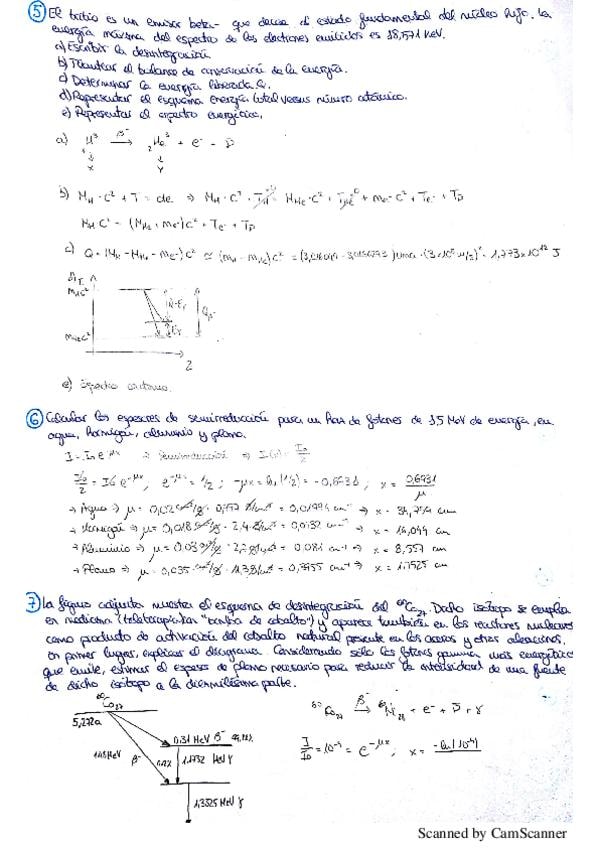 ⑤ El tritio es un emisor beta- que decae al estado fundamental del núcleo hijo. La
energía máxima del espectro de los electrones emitidos es 18,571 KeV.
a) Escribir la desintegración
b) Plantear el balance de conservación de la energía.
c) Determinar la energía liberada Q.
d) Representar el esquema energía total versus número atómico.
e) Representar el espectro energético.
a) H³ β⁻→ ₂He³ + e⁻ + ν̄
X Y
b) M_H · c² + T = cte ⇒ M_H · c² + T_H = M_He · c² + T_He + m_e · c² + T_e + T_ν̄
M_H c² = (M_He + m_e) c² + T_e + T_ν̄
c) Q = (M_H - M_He - m_e) c²
M_H c²
Q_β
M_He c²
Z
e) Espectro continuo.
⑥ Calcular los espesores de semirreducción para un haz de fotones de 1,5 MeV de energía, en
agua, hormigón, aluminio y plomo.
I = I₀ e^-μx ⇒ semirreducción ⇒ I(x) = I₀/2
I₀/2 = I₀ e^-μx ; e^-μx = 1/2 ; -μx = ln(1/2) = -0,6931 ; x = 0,6931/μ
→ Agua ⇒ μ =
→ Hormigón ⇒ μ =
→ Aluminio ⇒ μ = ⇒ x = 8,557 cm
→ Plomo ⇒ μ = ⇒ x = 1,7525 cm
⑦ La figura adjunta muestra el esquema de desintegración del ⁶⁰Co₂₇. Dicho isótopo se emplea
en medicina (teleterapia "bomba de cobalto") y aparece también en los reactores nucleares
como producto de activación del cobalto natural presente en los aceros y otras aleaciones.
En primer lugar, explicar el diagrama. Considerando sólo los fotones gamma más energéticos
que emite, estimar el espesor de plomo necesario para reducir la intensidad de una fuente
de dicho isótopo a la diezmilésima parte.
⁶⁰Co₂₇
5,272a
0,31 MeV β⁻
1,48 MeV β⁻
1,1732 MeV γ
1,3325 MeV γ
⁶⁰Co₂₇ β⁻→ ⁶⁰Ni₂₈ + e⁻ + ν̄ + γ
I/I₀ = 10⁻⁴ = e^-μx ; x = -ln(10⁻⁴)
Scanned by CamScanner